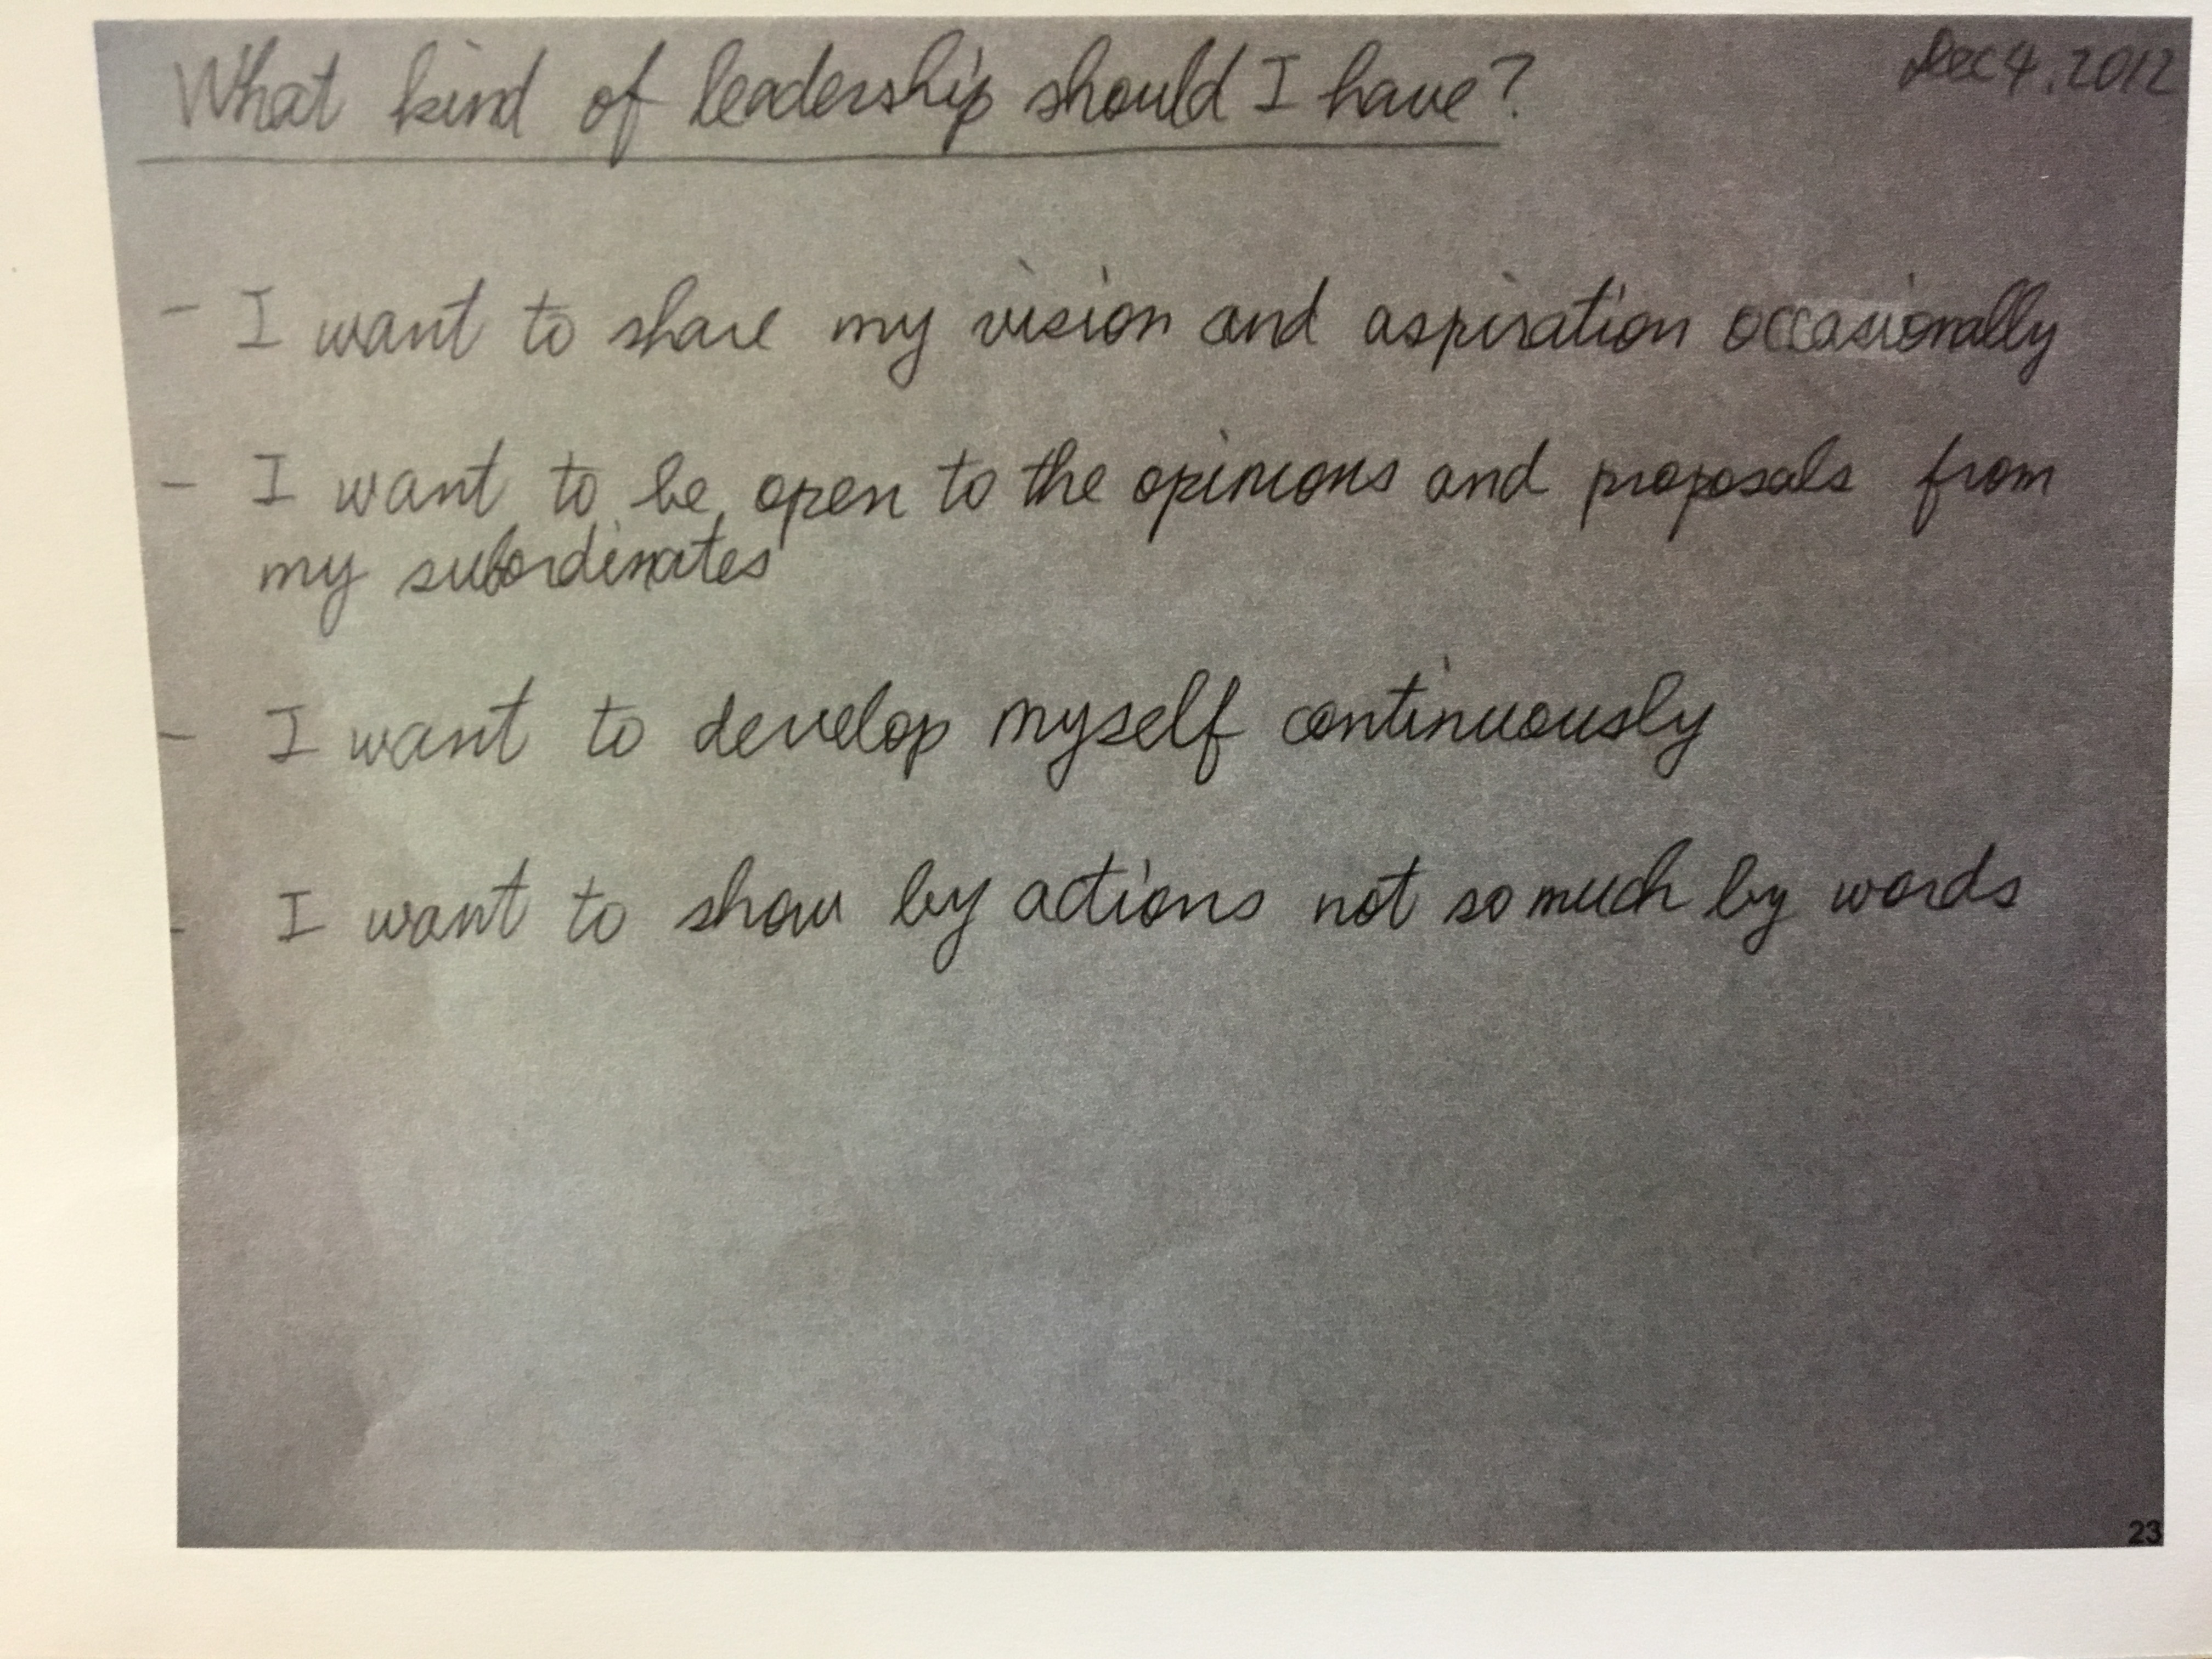 What kind of leadership should I have?
Dec 4, 2012
- I want to share my vision and aspiration occasionally
- I want to be open to the opinions and proposals from
my subordinates
- I want to develop myself continuously
- I want to show by actions not so much by words
23